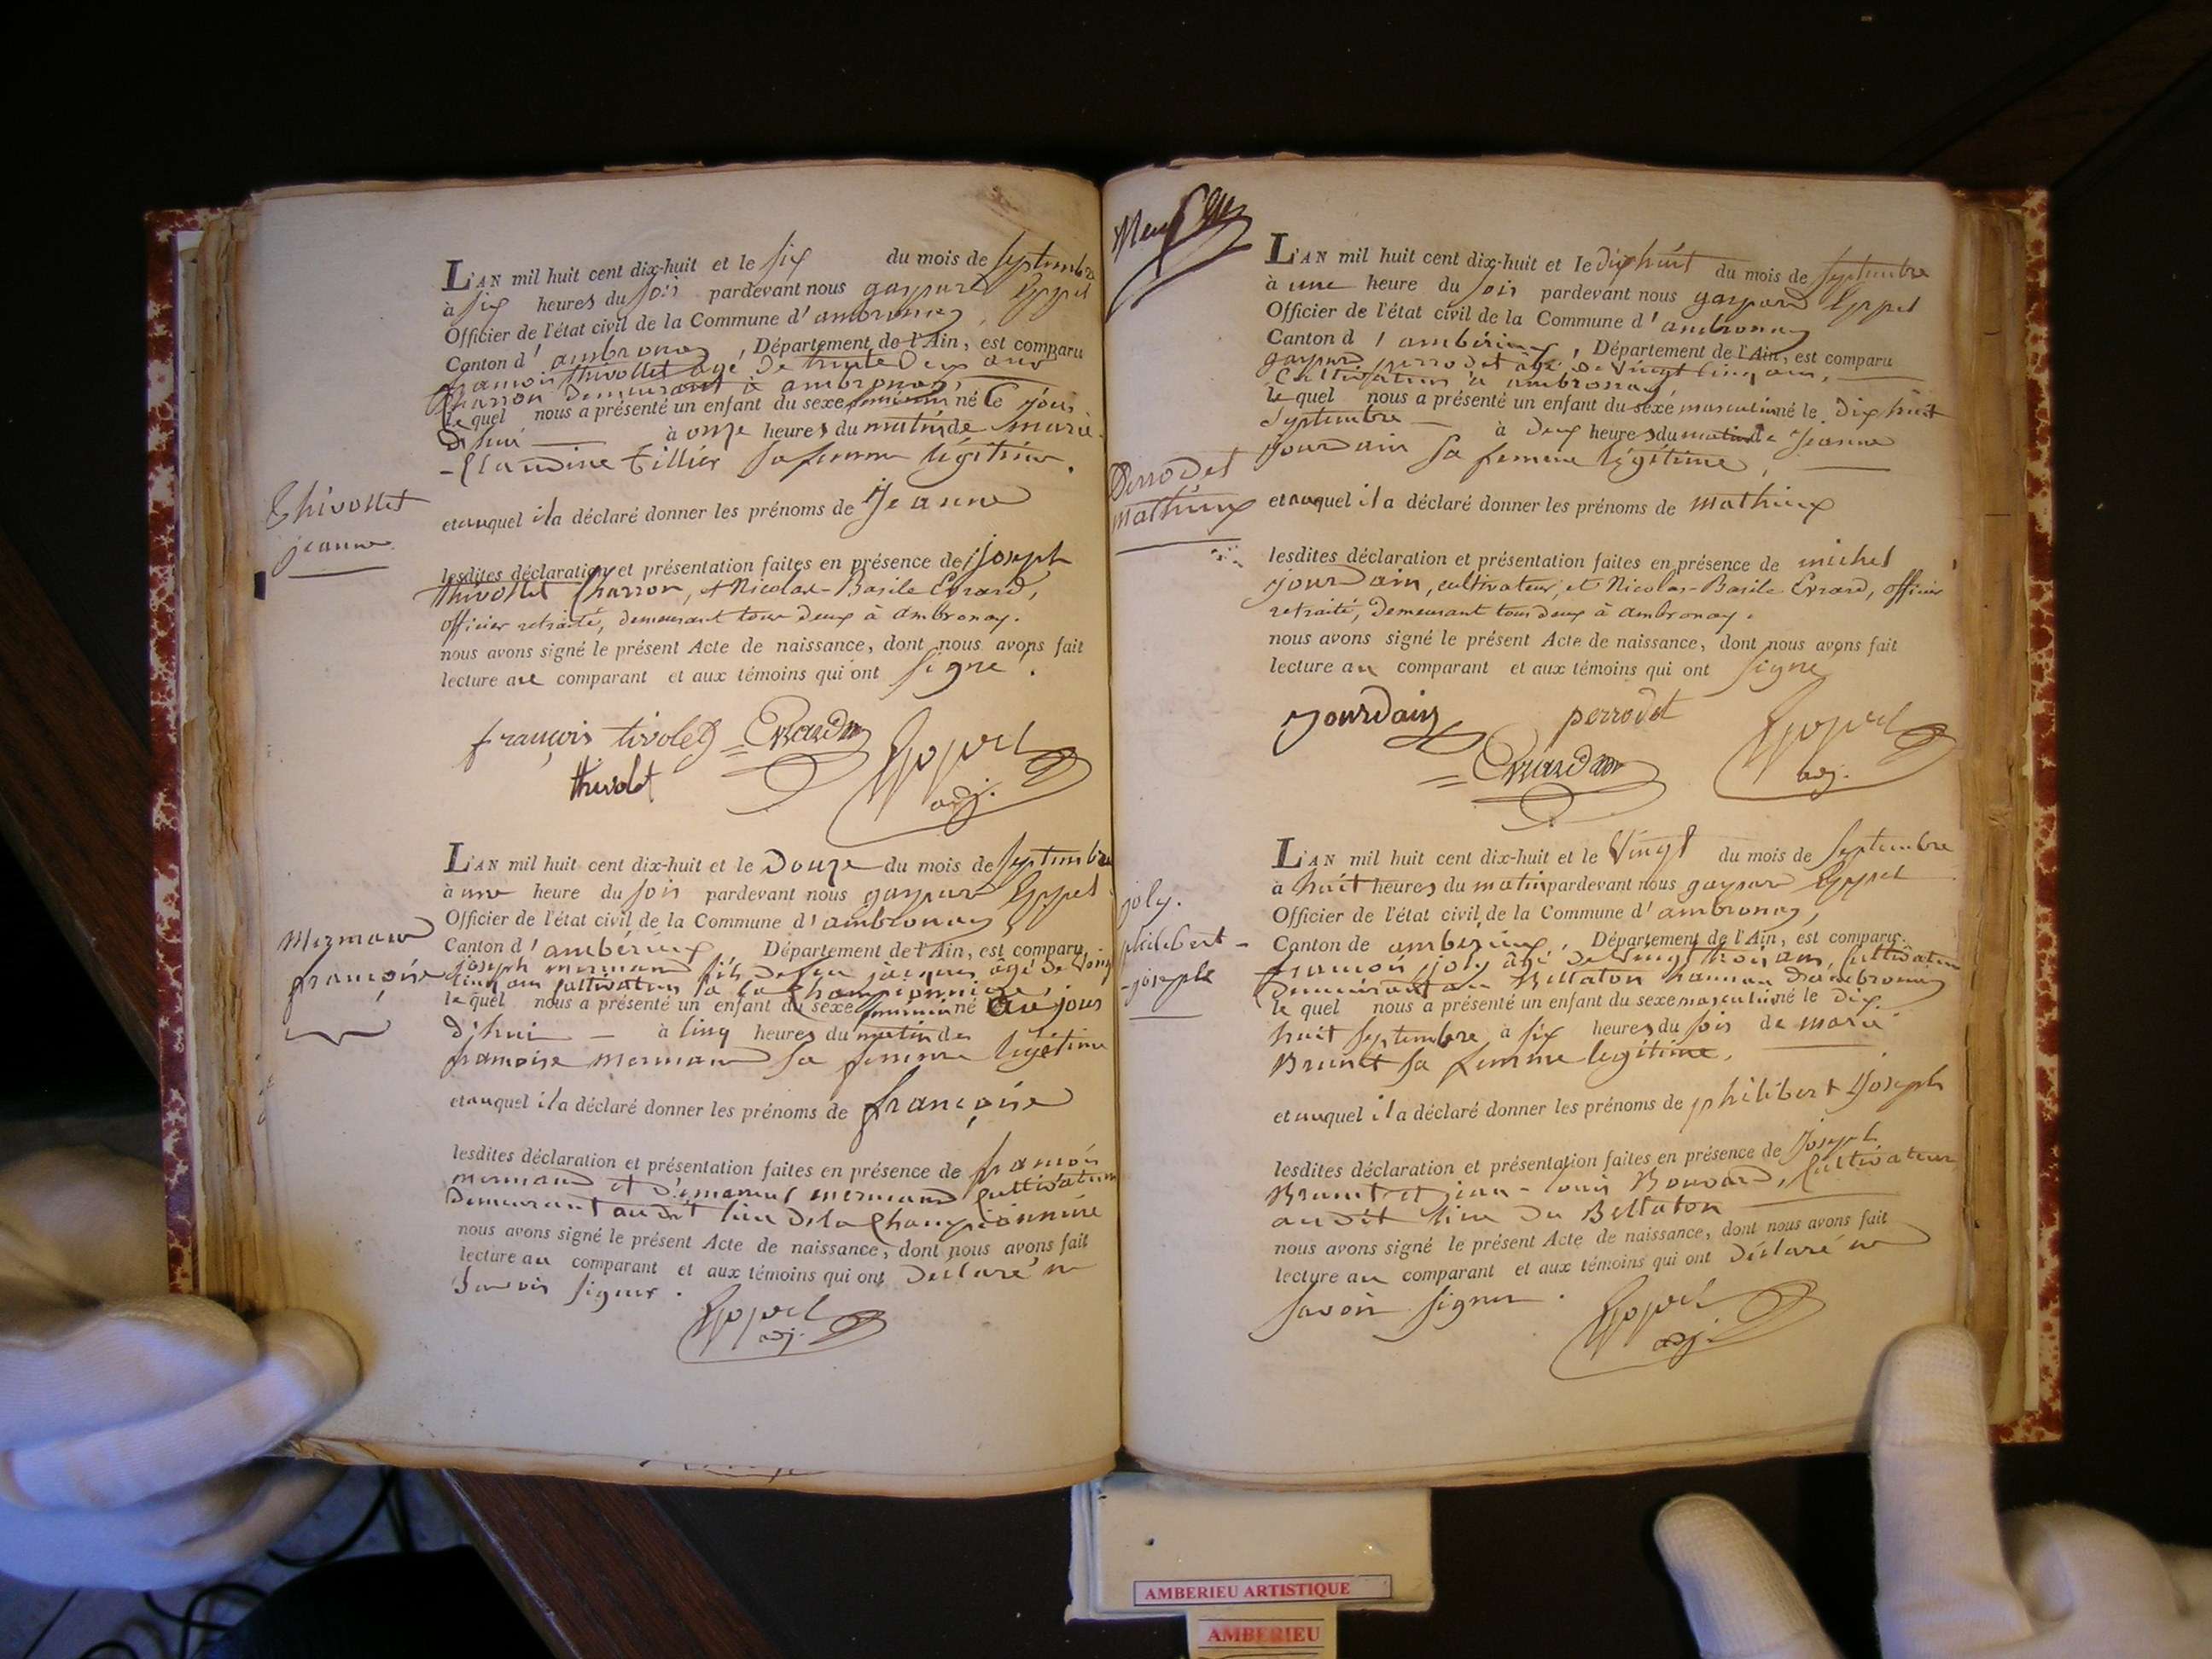 L'AN mil huit cent dix-huit et le six du mois de septembre
à six heures du soir pardevant nous gaspard Eppel
Officier de l'état civil de la Commune d'ambronay,
Canton d'ambronay, Département de l'Ain, est comparu
françois thivollet âgé de trente deux ans
charron demeurant à ambronay,
lequel nous a présenté un enfant du sexe feminin né ce jour
d'hui à onze heures du matin de marie
-Claudine Tillier sa femme légitime.
Thivollet
jeanne
et auquel il a déclaré donner les prénoms de Jeanne
lesdites déclaration et présentation faites en présence de joseph
thivollet charron, et Nicolas-Basile Evrard,
officier retraité, demeurant tous deux à ambronay.
nous avons signé le présent Acte de naissance, dont nous avons fait
lecture au comparant et aux témoins qui ont signé.
françois tivolet Evrard Eppel
thivolet adj.
L'AN mil huit cent dix-huit et le Douze du mois de septembre
à une heure du soir pardevant nous gaspard Eppel
Officier de l'état civil de la Commune d'ambronay
mermand
françoise
Canton d'ambérieux Département de l'Ain, est comparu
joseph mermand fils de feu jacques âgé de Vingt
cinq ans cultivateur à la Championnière,
lequel nous a présenté un enfant du sexe feminin né au jour
d'hui à cinq heures du matin de
françoise mermand sa femme légitime
et auquel il a déclaré donner les prénoms de françoise
lesdites déclaration et présentation faites en présence de françois
mermand et mermand cultivateurs
demeurant au dit lieu de la Championnière
nous avons signé le présent Acte de naissance, dont nous avons fait
lecture au comparant et aux témoins qui ont Déclaré ne
Savoir signer.
Eppel
adj.
L'AN mil huit cent dix-huit et le dix huit du mois de septembre
à une heure du soir pardevant nous gaspard Eppel
Officier de l'état civil de la Commune d'ambronay
Canton d'ambérieux, Département de l'Ain, est comparu
gaspard perrodet âgé de vingt cinq ans,
Cultivateur à ambronay,
lequel nous a présenté un enfant du sexe masculin né le dix huit
septembre à deux heures du matin de Jeanne
Jourdain sa femme légitime,
Perrodet
mathieux
et auquel il a déclaré donner les prénoms de mathieux
lesdites déclaration et présentation faites en présence de michel
jourdain, cultivateur, et Nicolas-Basile Evrard, officier
retraité, demeurant tous deux à ambronay.
nous avons signé le présent Acte de naissance, dont nous avons fait
lecture au comparant et aux témoins qui ont signé
jourdain perrodet Eppel
Evrard adj.
L'AN mil huit cent dix-huit et le Vingt du mois de Septembre
à huit heures du matin pardevant nous gaspard Eppel
Officier de l'état civil de la Commune d'ambronay,
joly.
philibert-
-joseph
Canton de ambérieux, Département de l'Ain, est comparu
françois joly âgé de Vingt trois ans, cultivateur
demeurant au Bellaton hameau d'ambronay
lequel nous a présenté un enfant du sexe masculin né le dix
huit septembre à six heures du soir de marie
Brunet sa femme légitime,
et auquel il a déclaré donner les prénoms de philibert Joseph
lesdites déclaration et présentation faites en présence de Joseph
Brunet et jean-louis Bouvard, Cultivateurs
au dit lieu du Bellaton
nous avons signé le présent Acte de naissance, dont nous avons fait
lecture au comparant et aux témoins qui ont Déclaré ne
Savoir signer.
Eppel
adj.
AMBERIEU ARTISTIQUE
AMBERIEU